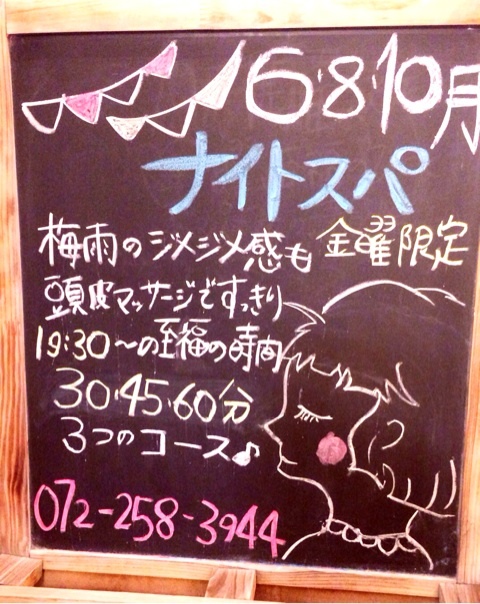 6・8・10月
ナイトスパ
金曜限定
梅雨のジメジメ感も
頭皮マッサージですっきり
19:30〜の至福の時間
30・45・60分
3つのコース♪
072-258-3944